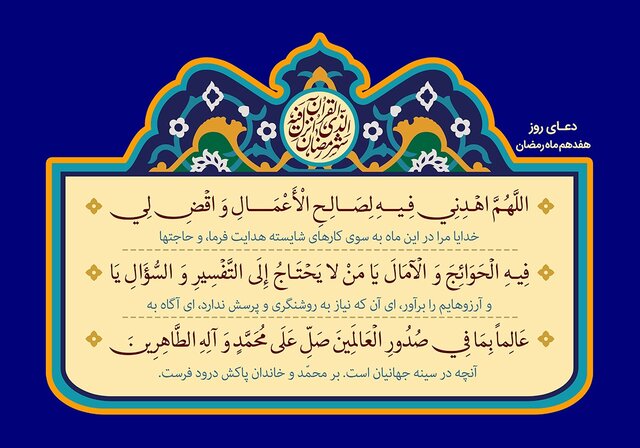 دعـای روز
هفدهم ماه رمضان
شهر رمضان الذی انزل فیه القرآن
اللَّهُمَّ اهْدِنِي فِيهِ لِصَالِحِ الْأَعْمَالِ وَ اقْضِ لِي
خدایا مرا در این ماه به سوی کارهای شایسته هدایت فرما، و حاجتها
فِيهِ الْحَوَائِجَ وَ الْآمَالَ يَا مَنْ لا يَحْتَاجُ إِلَى التَّفْسِيرِ وَ السُّؤَالِ يَا
و آرزوهایم را برآور، ای آن که نیاز به روشنگری و پرسش ندارد، ای آگاه به
عَالِماً بِمَا فِي صُدُورِ الْعَالَمِينَ صَلِّ عَلَى مُحَمَّدٍ وَ آلِهِ الطَّاهِرِينَ
آنچه در سینه جهانیان است. بر محمّد و خاندان پاکش درود فرست.